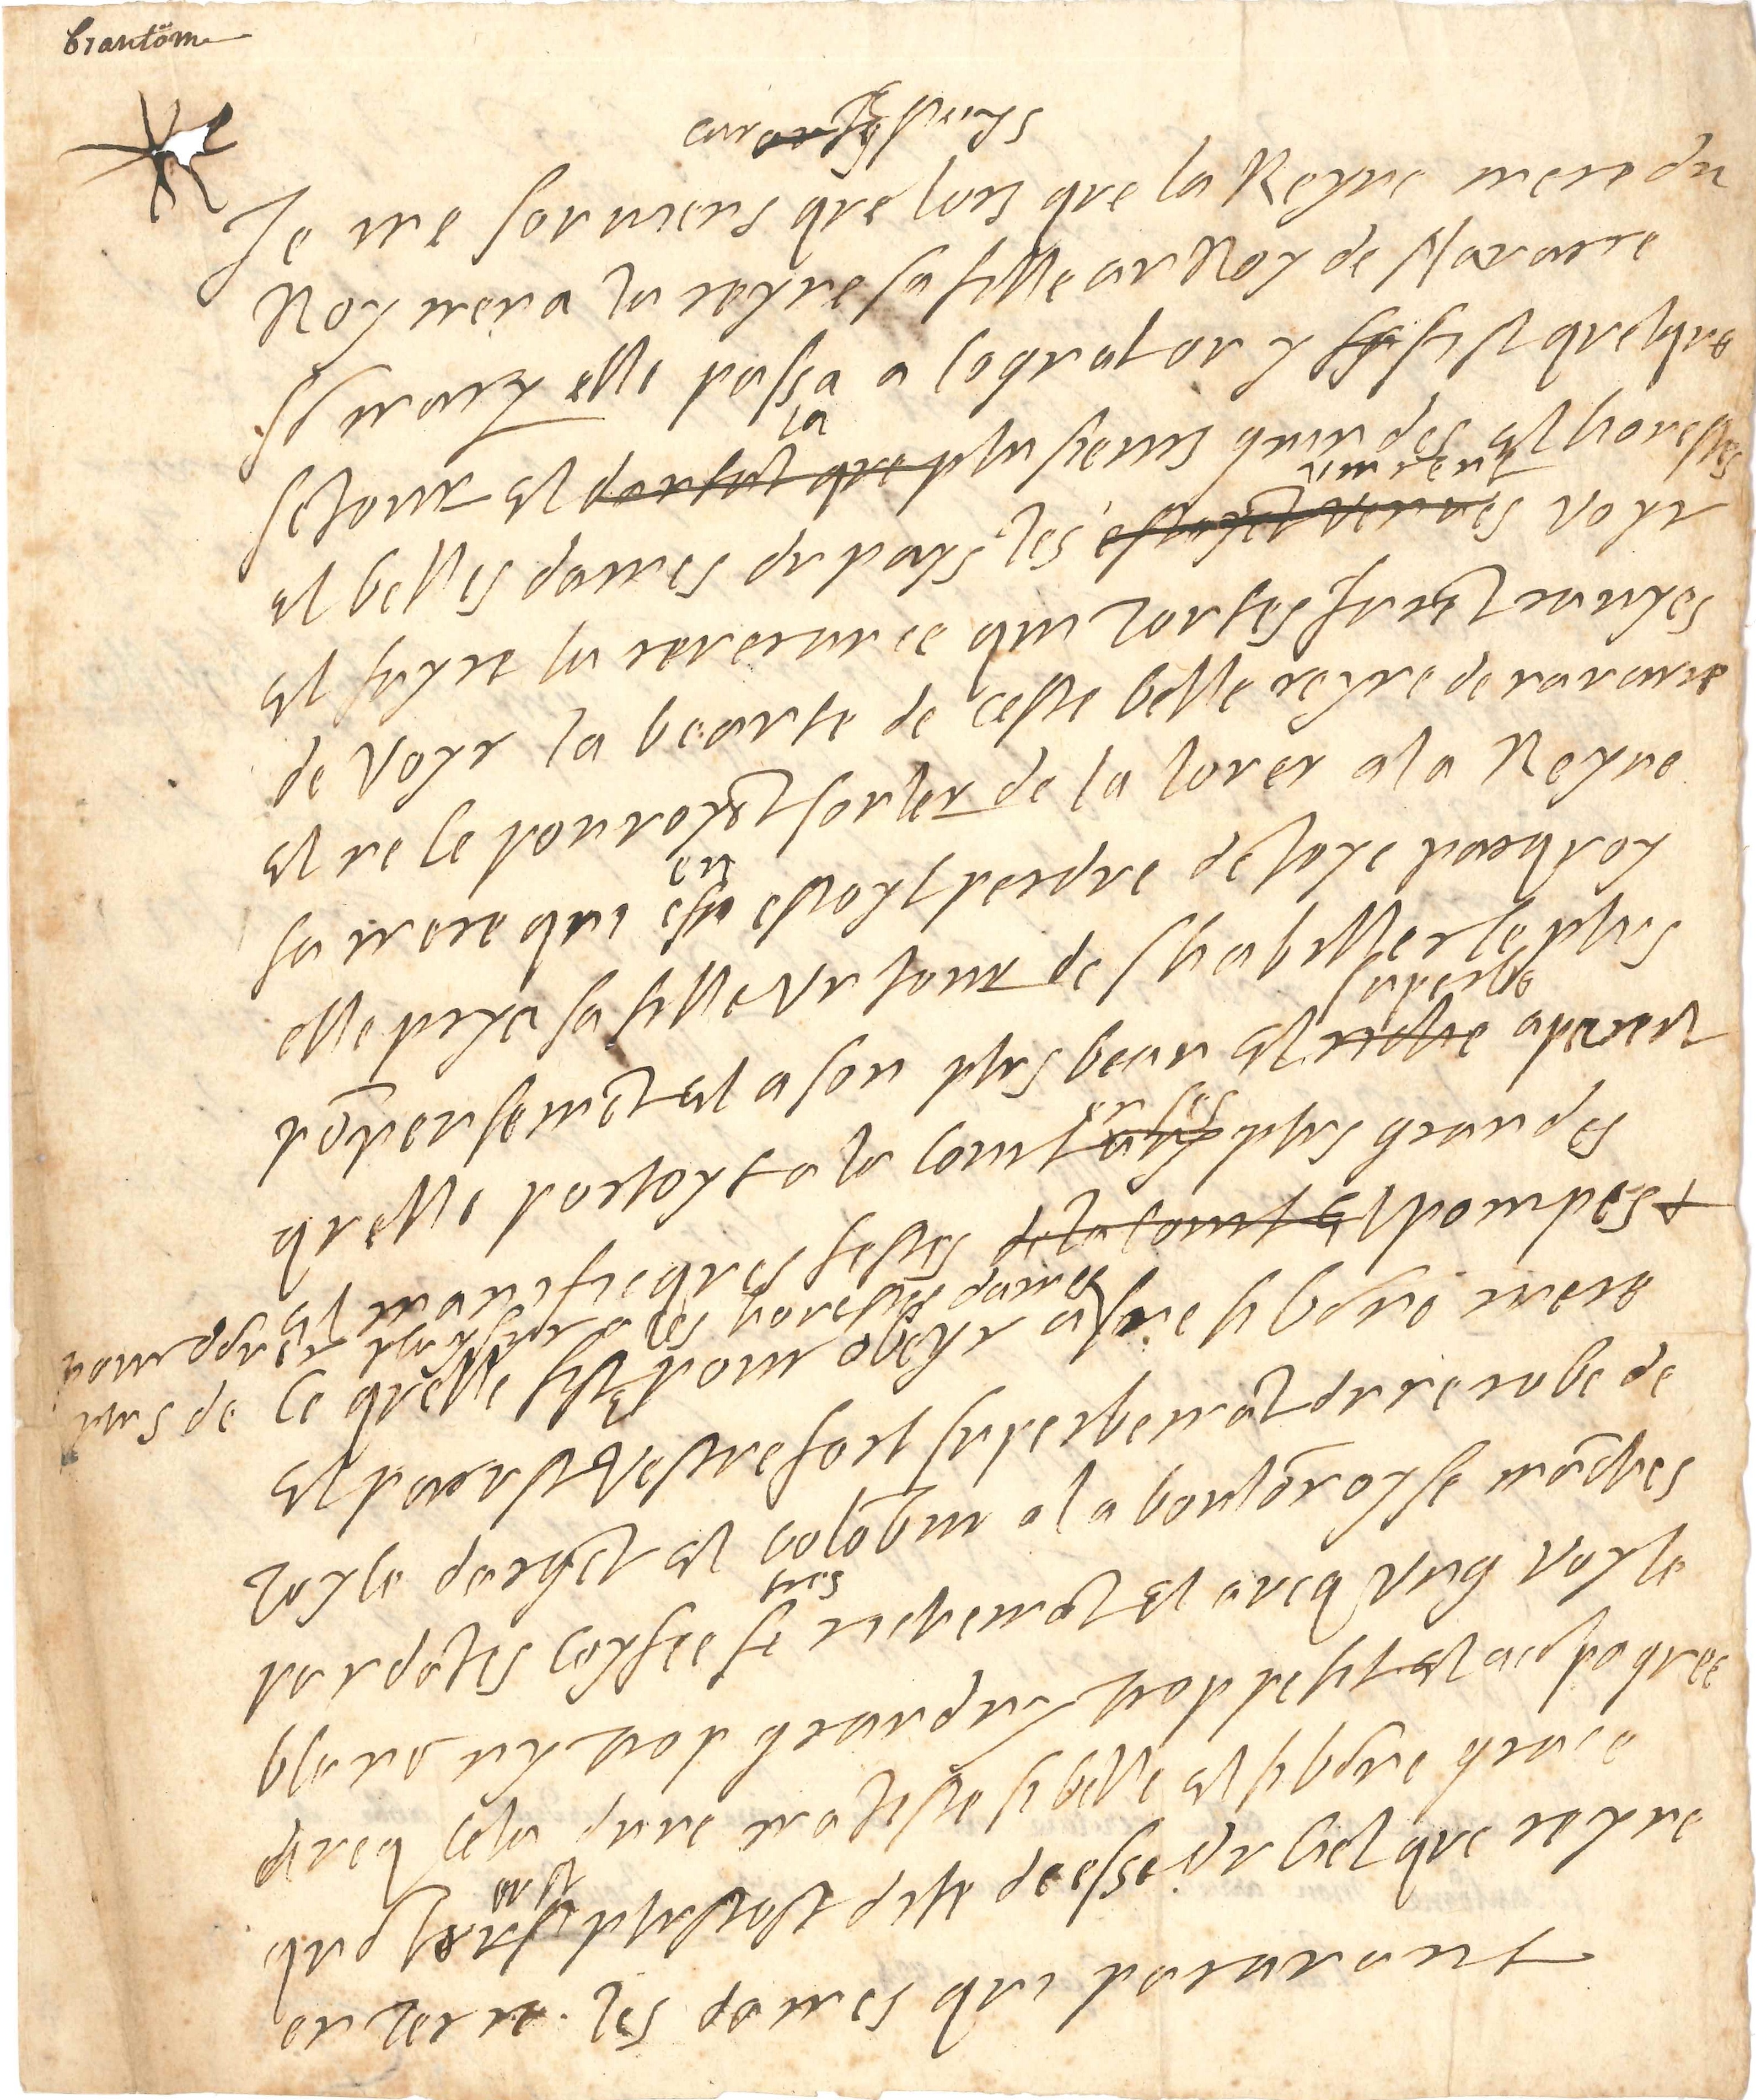 brantome
car j'y estois
Je me souviens que lors que la Reyne mere du
Roy mena la reyne sa fille au Roy de Navarre
son mary elle passa a coignac ou y fist quelque
sejour et la plusieurs grandes et honnestes
et belles dames du pays les vindrent voyr
et fayre la reverance qui toutes furent ravyes
de voyr la beauté de ceste belle reyne de navarre
et ne se pouvoyent souler de la louer a la Reyne
sa mere qui en estoyt perdue de joye parquoy
elle prya sa fille un jour de s'habiller le plus
pompeusement et a son plus beau et superbe apareil
qu'elle portoyt a la court en ses plus grandes
et magnifiques festes pompes
pour donner plaisir a ces honnestes dames
ce qu'elle fit pour obeyr a une si bonne mere
et parut vestue fort superbement d'une robe de
toyle d'argent et colombin a la boulonoyse manches
pendantes coyffee tres richement et avec ung voyle
blanc ny trop grand ny trop petit et acompagnee
avec cela d'une majesté si belle et si bonne grace
qu'on l'eust plustost dite deesse du ciel que reyne
en terre. les dames qui paravant